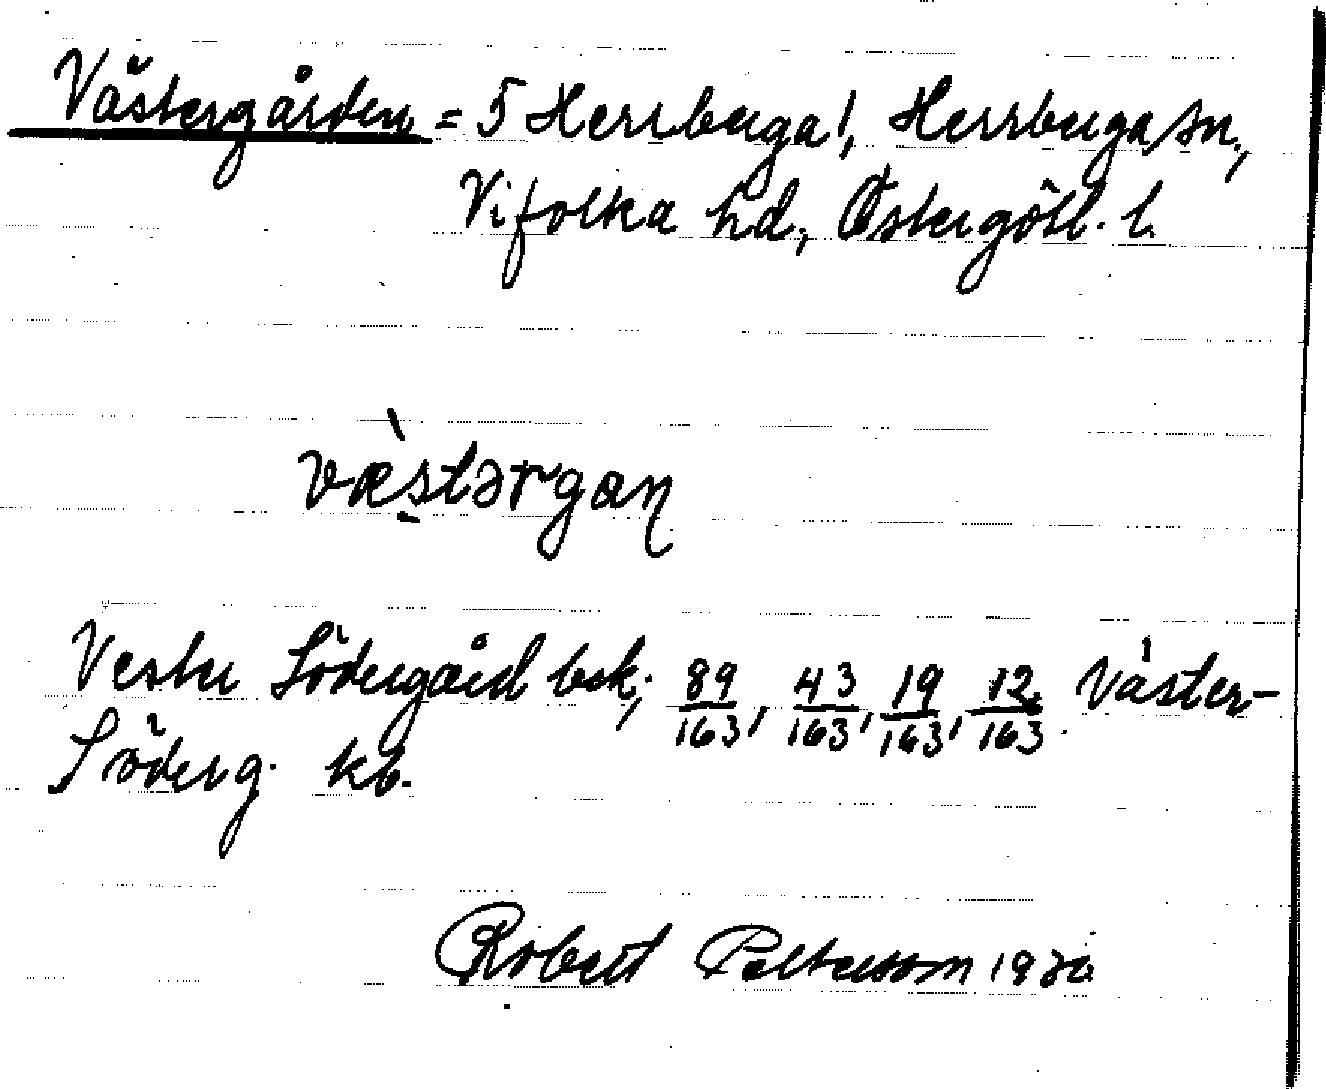 Västergården = 5 Herrbeuga!, Herrbeuga sn.,
Vifolka hd, Östergötl. l.
væ̀stərgaɳ
Vester Södergård bsk; 89/163, 43/163, 19/163, 12/163. Väster-
Söderg. kb.
Robert Pettersson